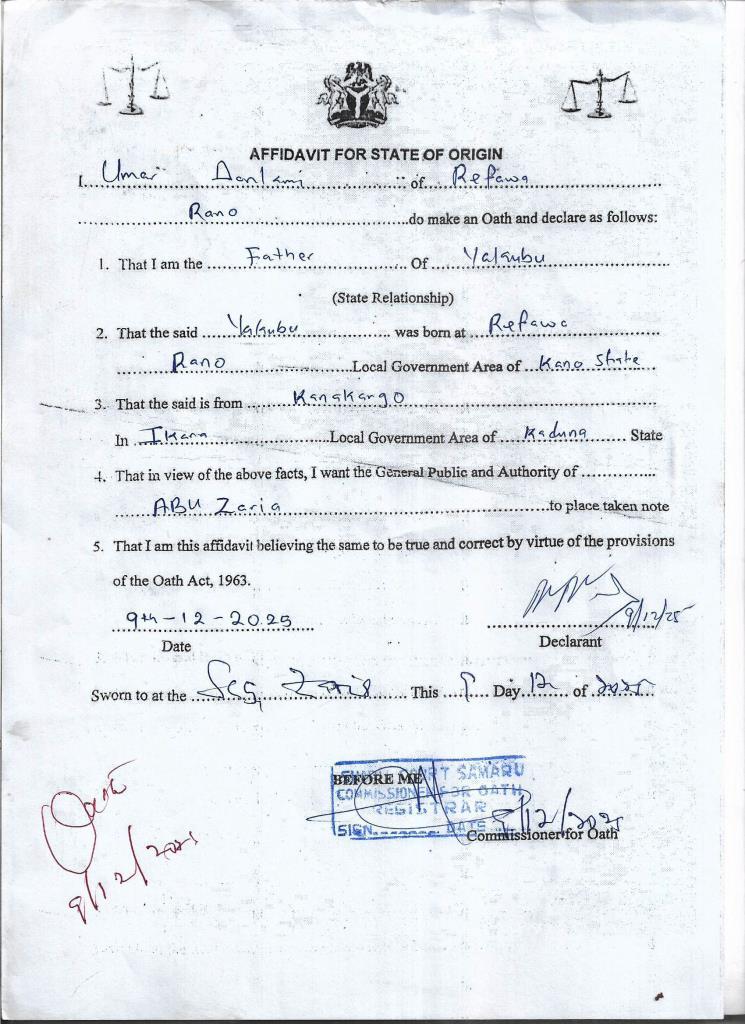 AFFIDAVIT FOR STATE OF ORIGIN
I. Umar Danlami of Refawa
Rano do make an Oath and declare as follows:
1. That I am the Father Of Yakubu
(State Relationship)
2. That the said Yakubu was born at Refawa
Rano Local Government Area of Kano State
3. That the said is from Kanakargo
In Ikara Local Government Area of Kaduna State
4. That in view of the above facts, I want the General Public and Authority of
ABU Zaria to place taken note
5. That I am this affidavit believing the same to be true and correct by virtue of the provisions
of the Oath Act, 1963.
9th-12-2025
9/12/25
Date
Declarant
Sworn to at the Zaria This 9 Day 12 of 2025
BEFORE ME
COURT SAMARU
COMMISSIONER FOR OATH
REGISTRAR
SIGN. DATE 9/12/2025
Commissioner for Oath
9/12/2025